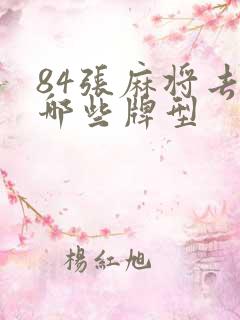 84張麻将去
哪些牌型
楊紅旭